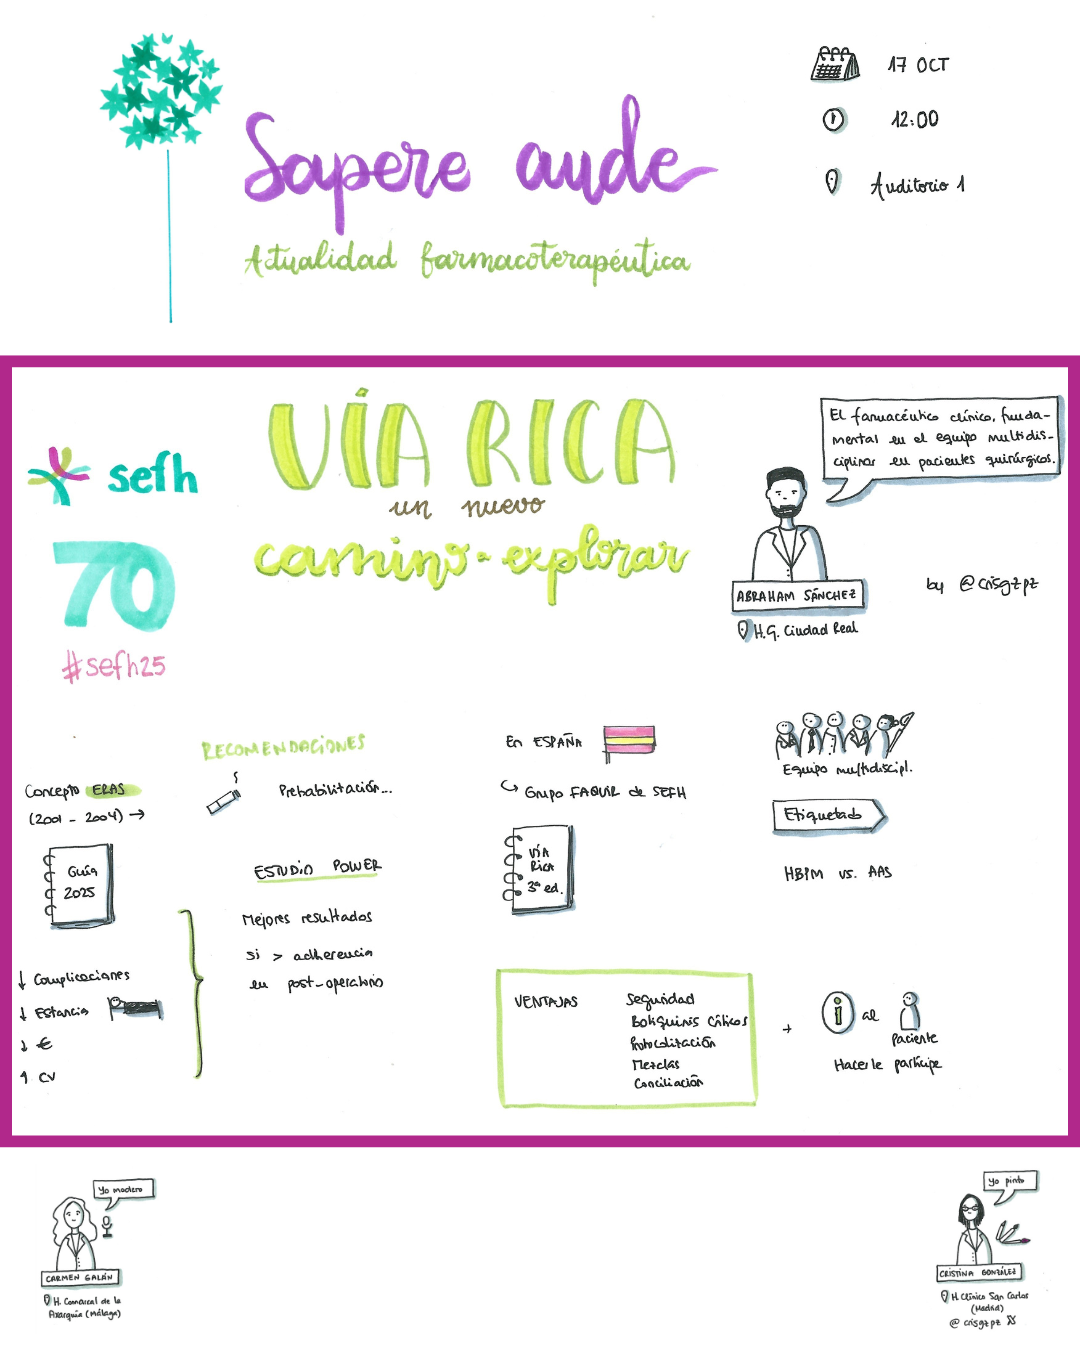 17 OCT
12:00
Auditorio 1
Sapere aude
Actualidad farmacoterapéutica
VÍA RICA
un nuevo
camino a explorar
sefh
70
#sefh25
El farmacéutico clínico, funda-
mental en el equipo multidis-
ciplinar en pacientes quirúrgicos.
ABRAHAM SÁNCHEZ
H.G. Ciudad Real
by @crisgzpz
Concepto ERAS
(2001 - 2004) →
Guía
2025
↓ Complicaciones
↓ Estancia
↓ €
↑ CV
RECOMENDACIONES
Prehabilitación...
ESTUDIO POWER
Mejores resultados
si > adherencia
en post-operatorio
En ESPAÑA
↳ Grupo FAQUIR de SEFH
VÍA
RICA
3ª ed.
Equipo multidiscipl.
Etiquetado
HBPM vs. AAS
VENTAJAS
Seguridad
Botiquines Críticos
Protocolización
Mezclas
Conciliación
+
i al
Paciente
Hacerle partícipe
Yo modero
CARMEN GALÁN
H. Comarcal de la
Axarquía (Málaga)
Yo pinto
CRISTINA GONZÁLEZ
H. Clínico San Carlos
(Madrid)
@crisgzpz